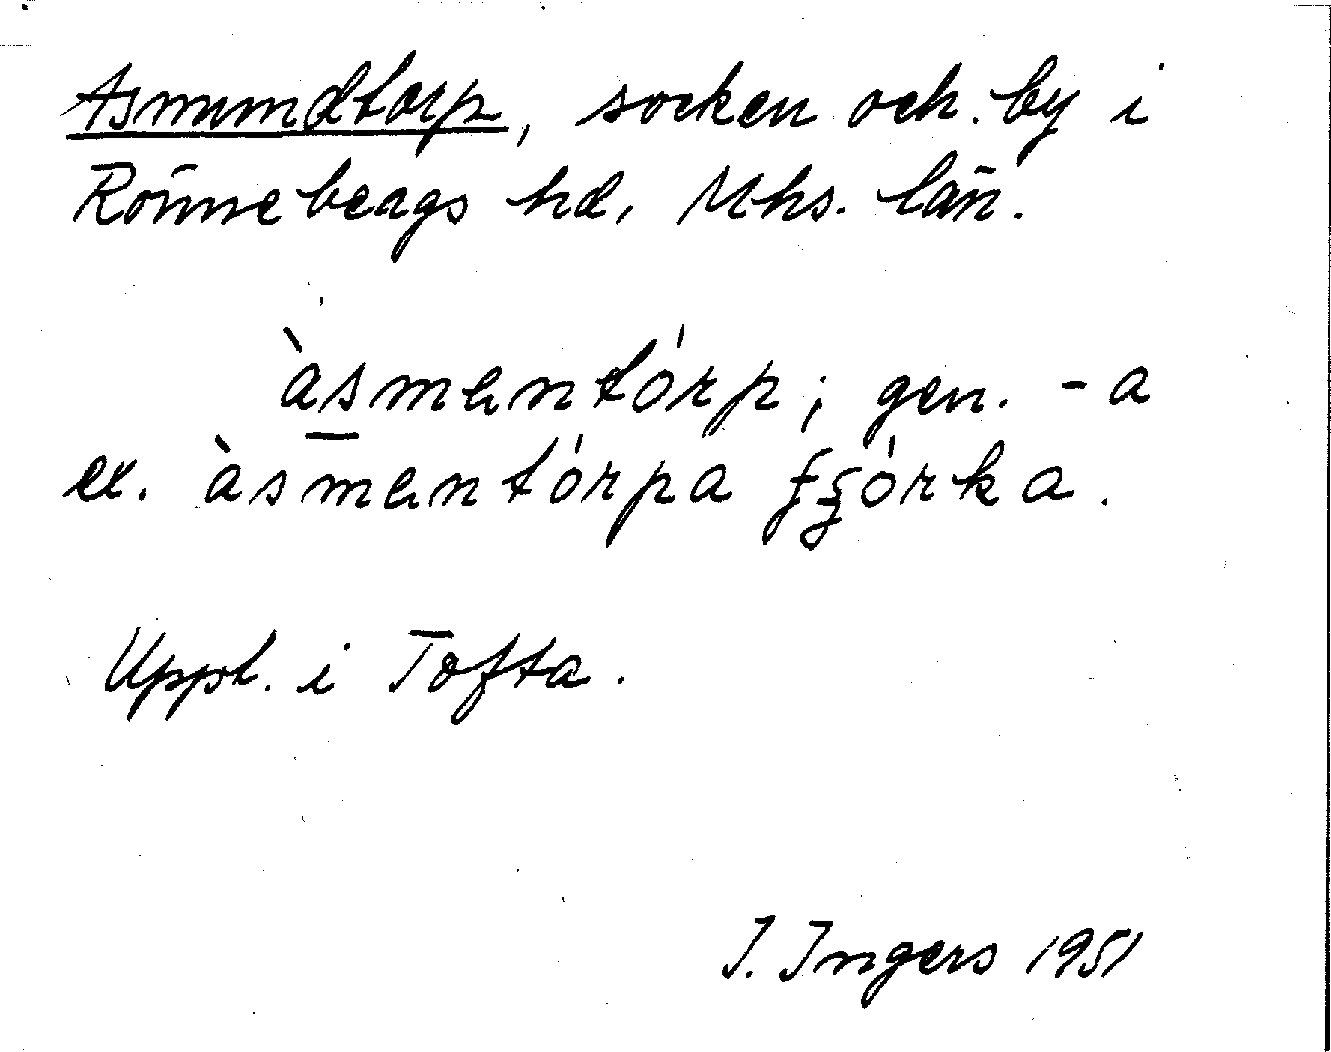 Asmundtorp, socken och by i
Rönnebergs hd, Mhs. län.
àsmentórp; gen. -a
ex. àsmentórpa
Uppt. i Tofta.
I. Ingers 1951